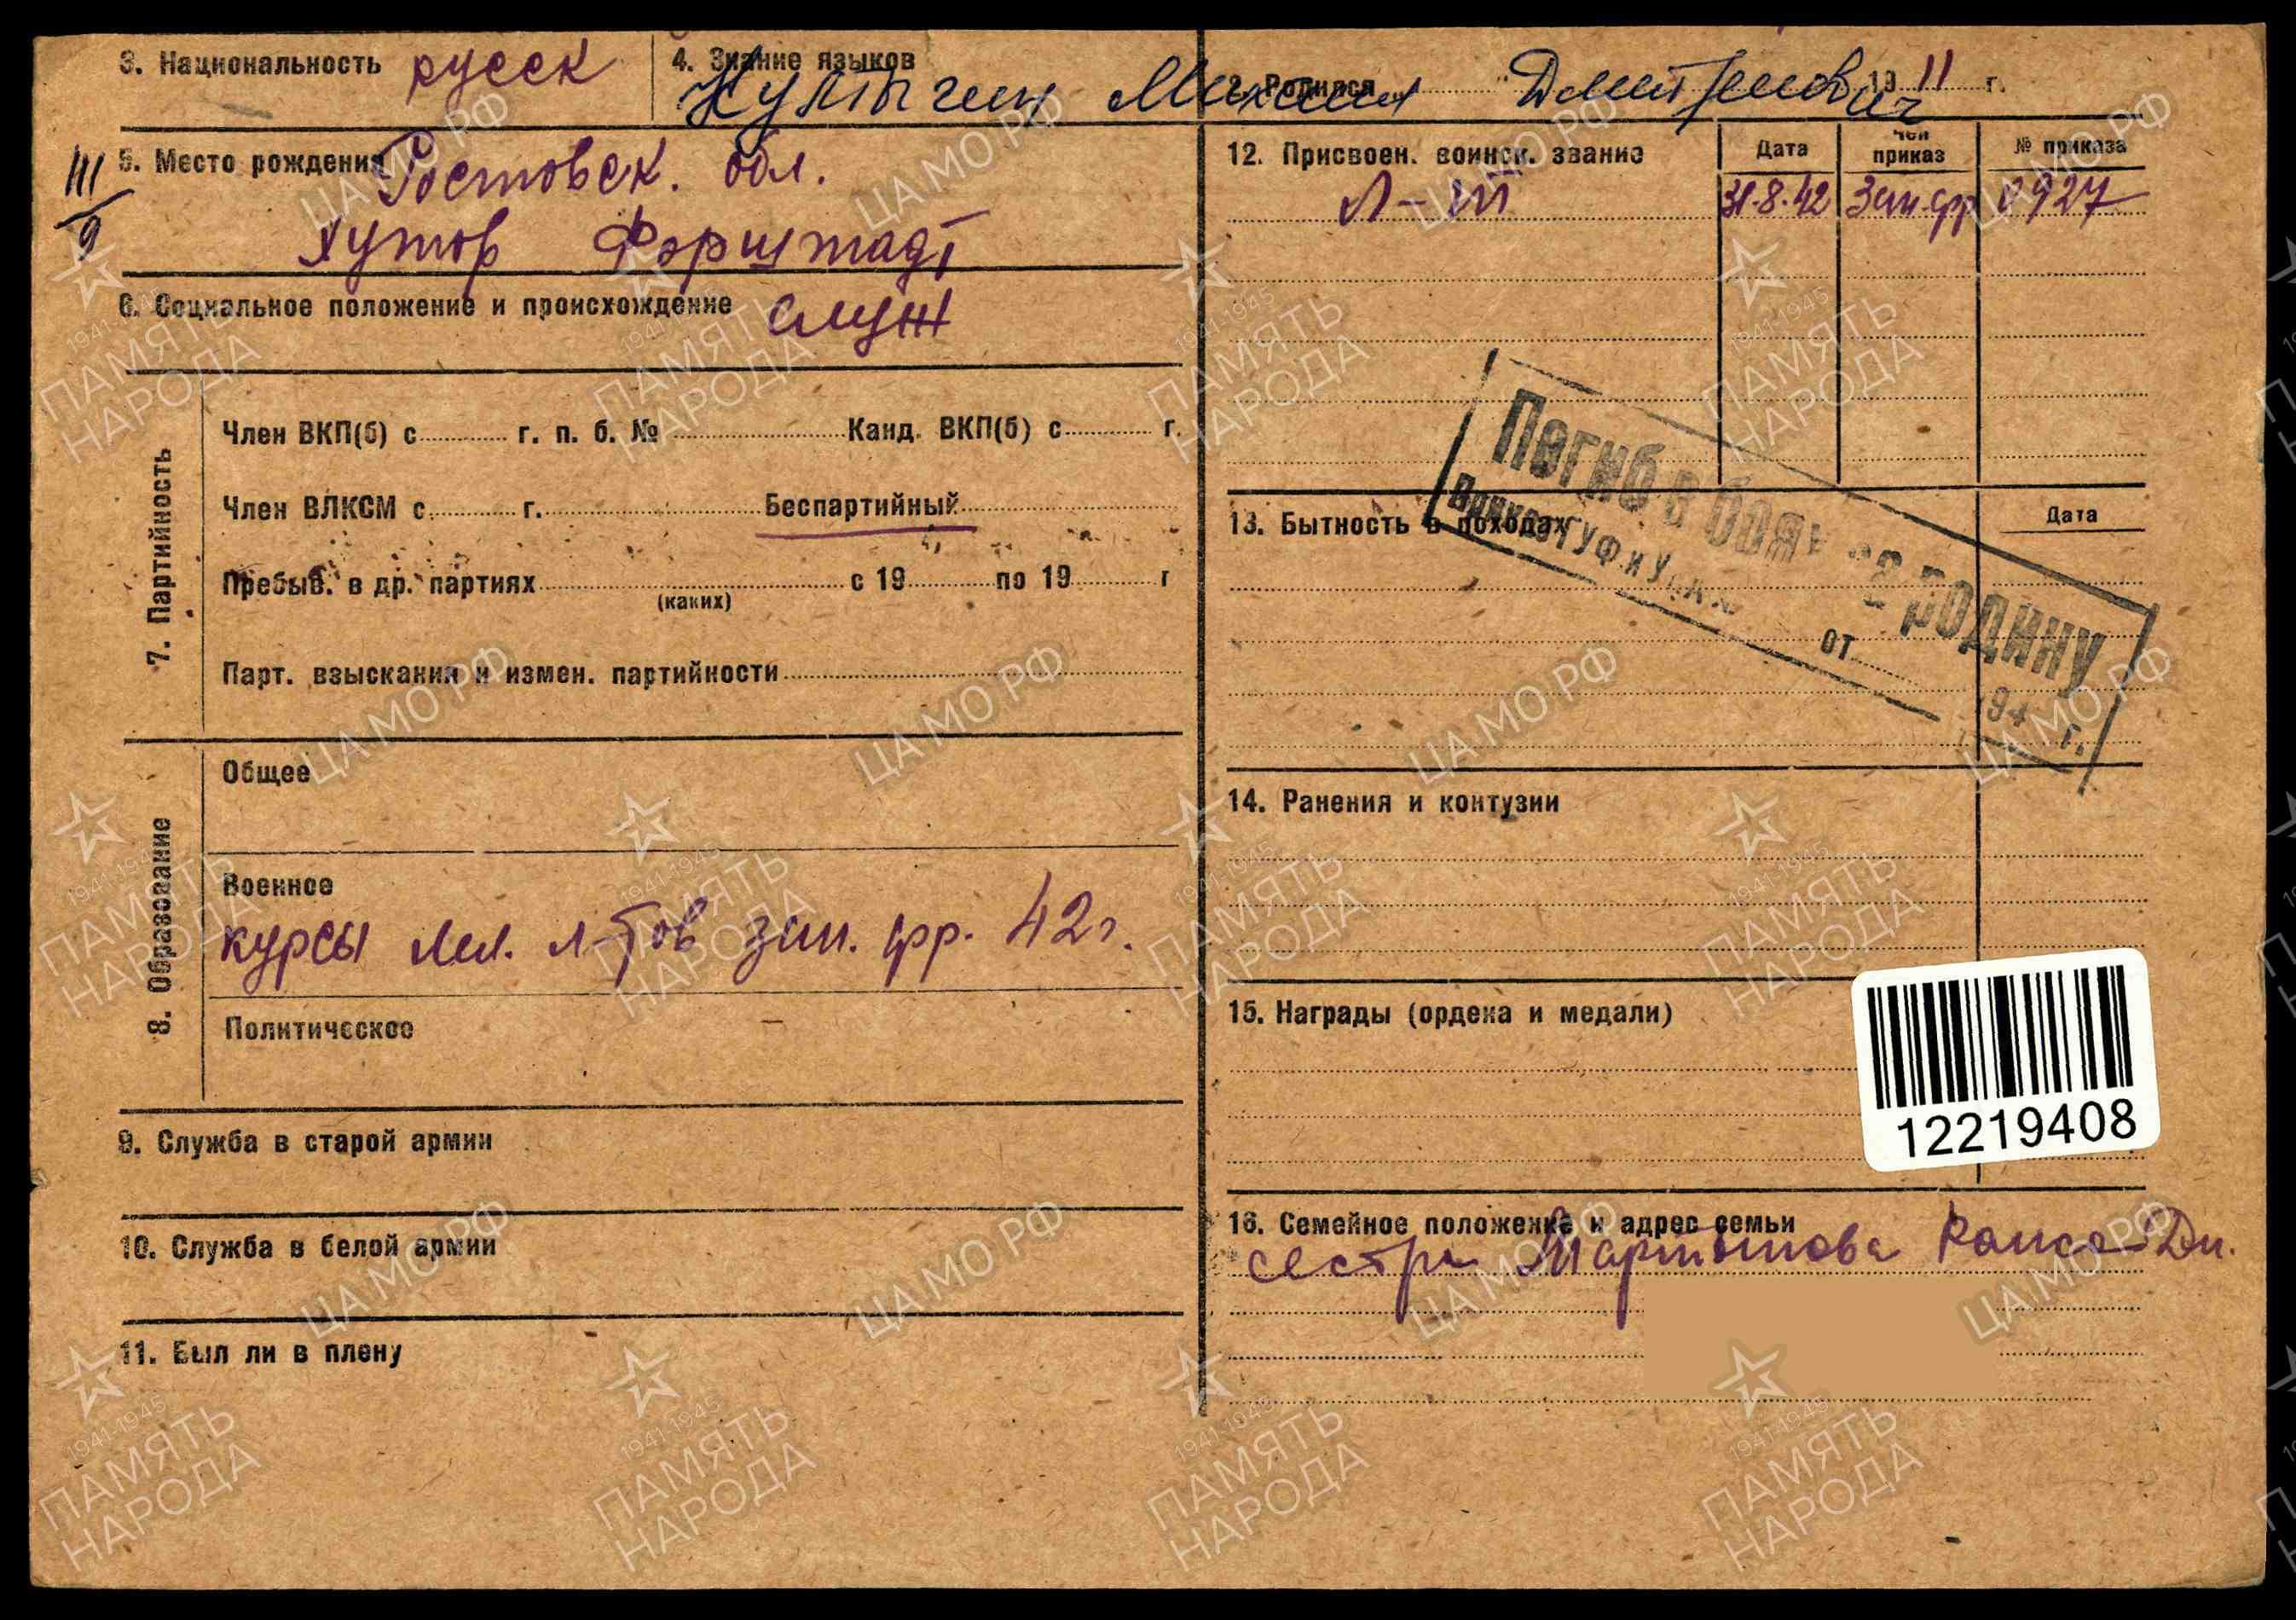 3. Национальность русск
4. Знание языков
2. Родился 1911 г.
Култыгин Максим Дмитриевич
III/9
5. Место рождения Ростовск. обл.
Хутор Форштадт
6. Социальное положение и происхождение служ
7. Партийность
Член ВКП(б) с г. п. б. № Канд. ВКП(б) с г.
Член ВЛКСМ с г. Беспартийный
Пребыв. в др. партиях с 19 по 19 г
(каких)
Парт. взыскания и измен. партийности
8. Образование
Общее
Военное
курсы мл. л-тов зап. фр. 42 г.
Политическое
9. Служба в старой армии
10. Служба в белой армии
11. Был ли в плену
12. Присвоен. воинск. звание Дата Чей приказ № приказа
Л-т 31.8.42 Зап.фр 0927
Погиб в боях за родину
Приказ ГУФ и У
от 194 г.
13. Бытность в походах Дата
14. Ранения и контузии
15. Награды (ордена и медали)
12219408
16. Семейное положение и адрес семьи
сестра Раиса Дм.
ЦАМО РФ
1941-1945
ПАМЯТЬ
НАРОДА